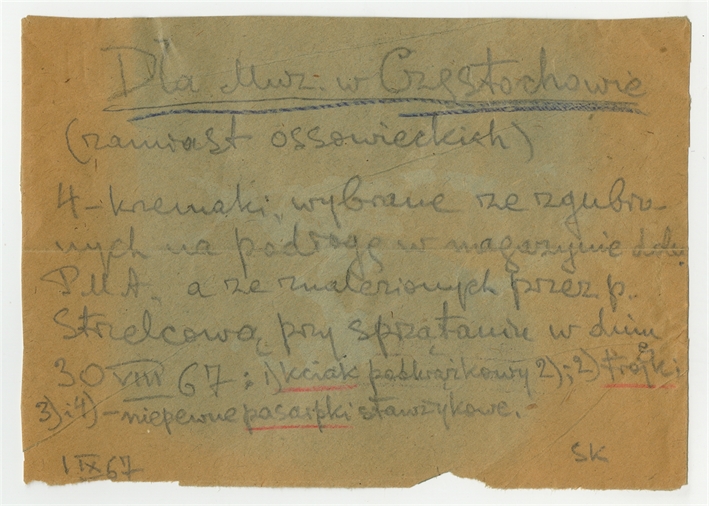 Dla Muz. w Częstochowie
(zamiast ossowieckich)
4 – krzemaki, wybrane ze zgubio-
nych na podłogę w magazynie
PMA, a ze znalezionych przez p.
Strelcową przy sprzątaniu w dniu
30 VIII 67: 1) kciak podkrążkowy 2); 2) trojki
3) i 4) – niepewne pasarpki stawzykowe. –
1 IX 67 SK